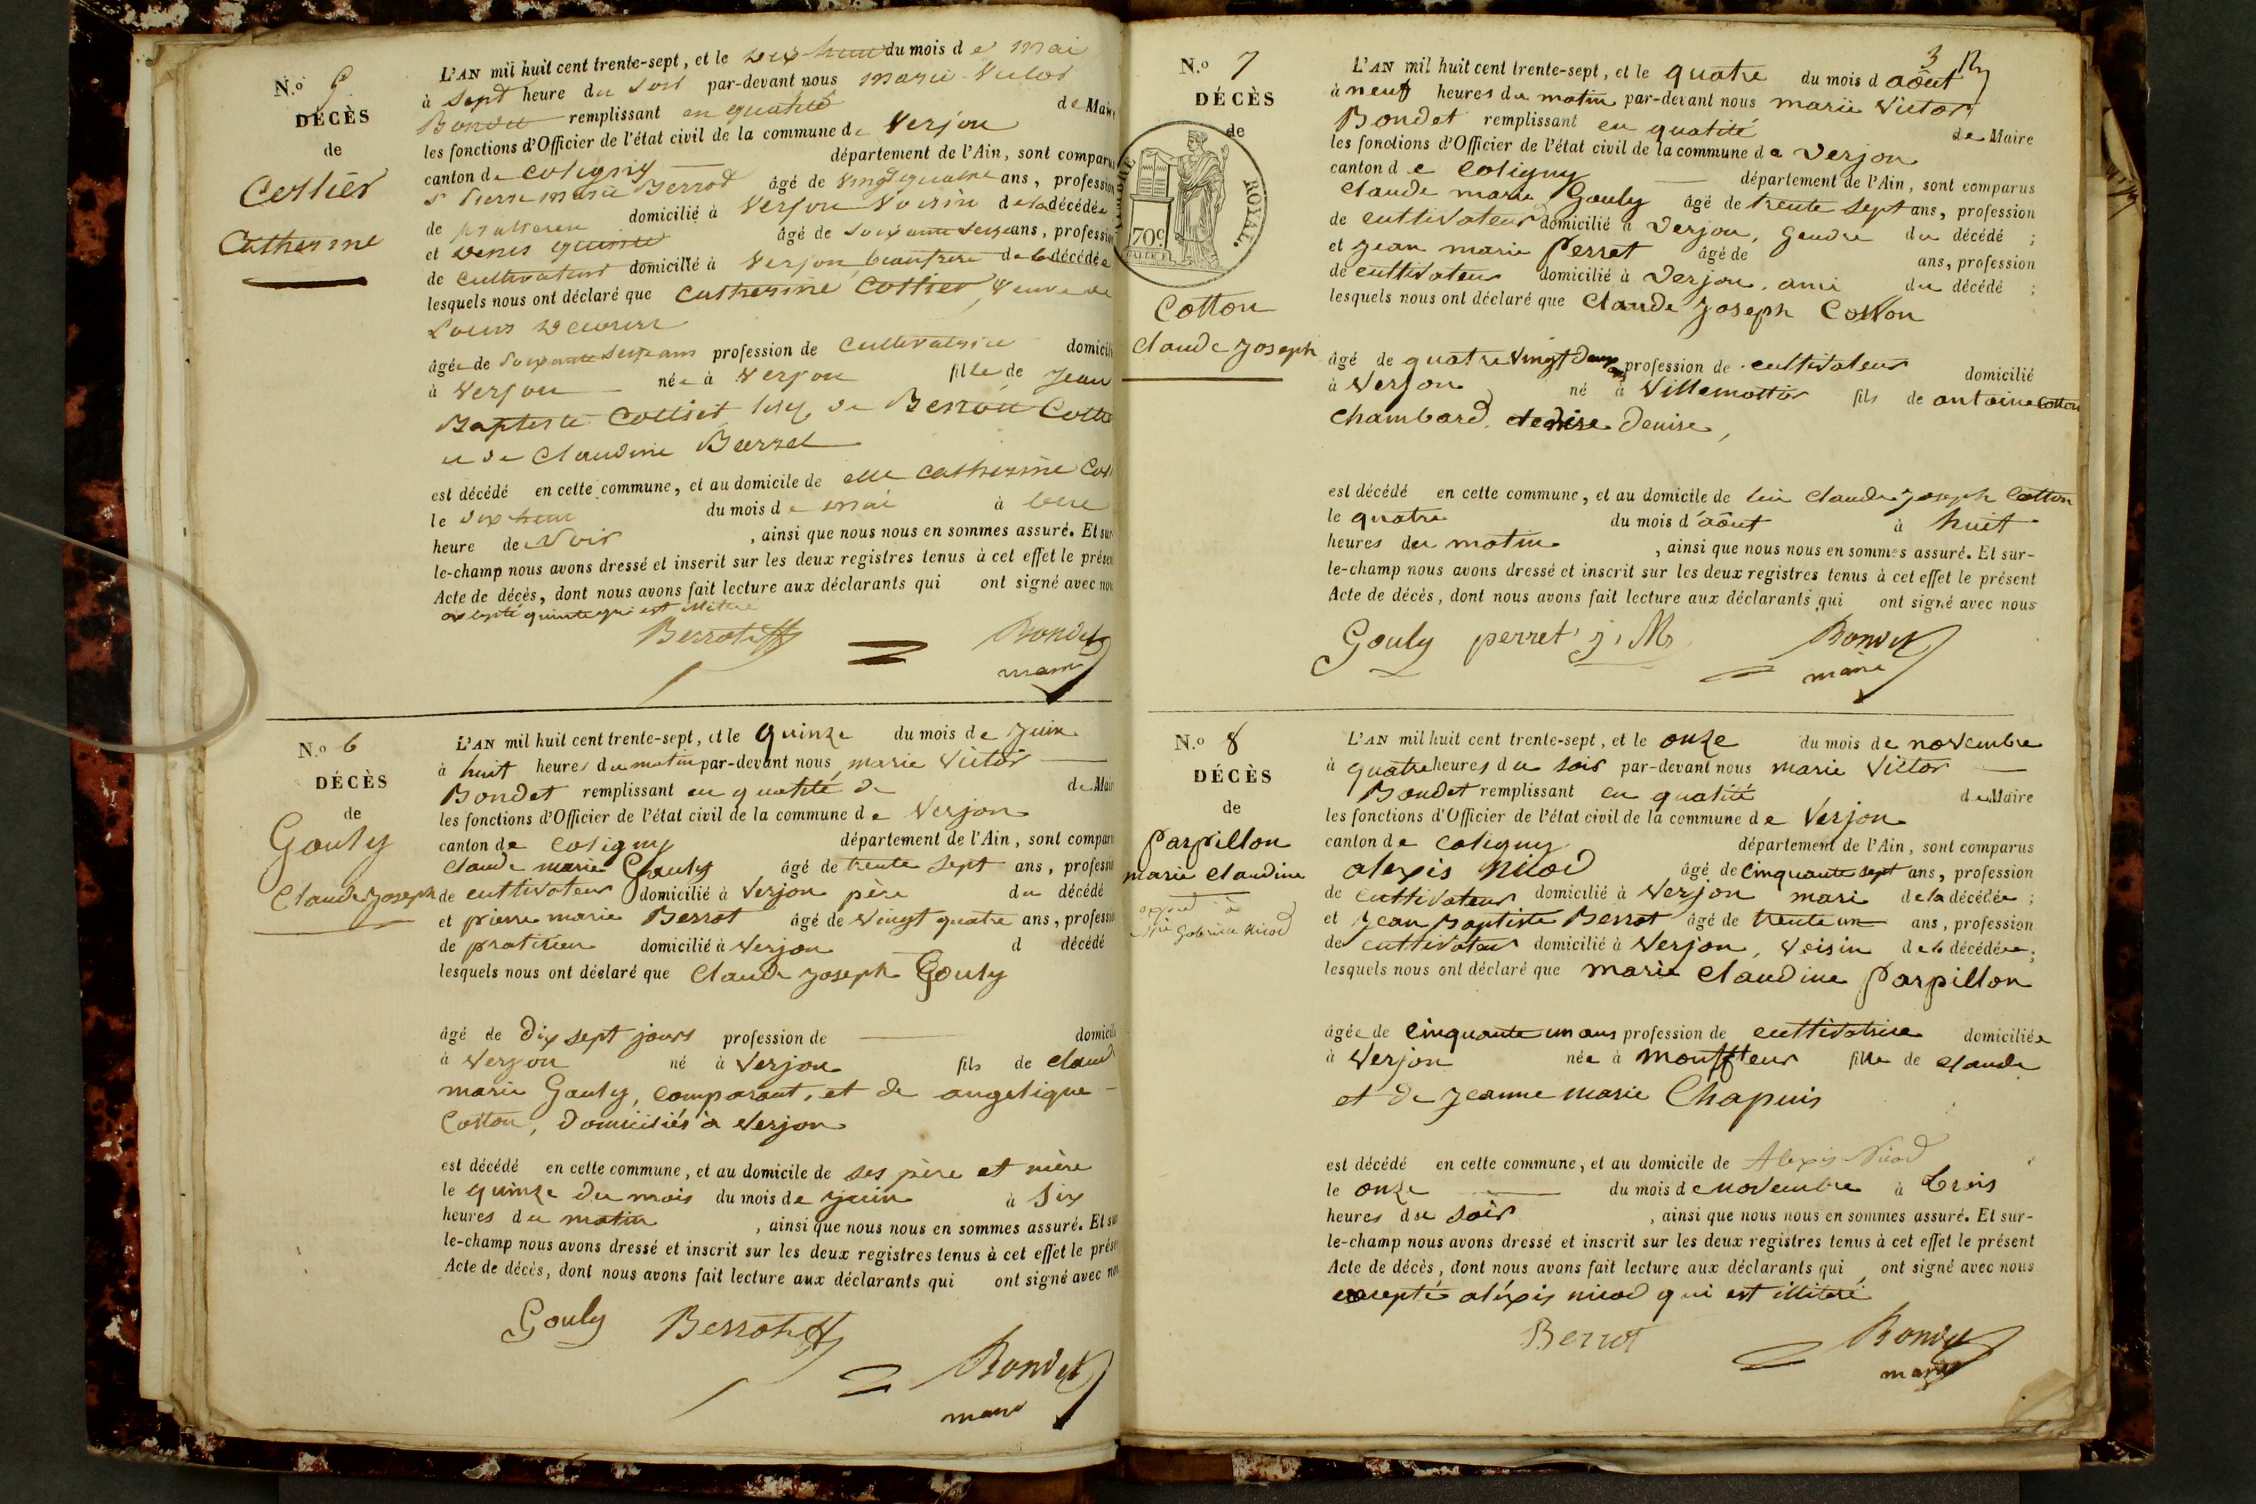 N.o 5
DÉCÈS
de
Collier
Catherine
L'AN mil huit cent trente-sept, et le dix huit du mois de mai
à sept heure du soir par-devant nous marie Victor
Bondet remplissant en qualité de Maire
les fonctions d'Officier de l'état civil de la commune de Verjon
canton de coligny département de l'Ain, sont comparus
Pierre marie Berrod âgé de vingt quatre ans, profession
de praticien domicilié à Verjon Voisin de la décédée
et denis quinte âgé de soixante seize ans, profession
de cultivateur domicilié à Verjon beaufrere de la décédée
lesquels nous ont déclaré que Catherine Collier, Veuve de
Louis
âgée de soixante seize ans profession de Cultivatrice domicili
à Verjon née à Verjon fille de Jean
Baptiste Collier de Collie
et de Claudine
est décédé en cette commune, et au domicile de elle catherine Col
le dix huit du mois de mai à
heure de Soir, ainsi que nous nous en sommes assuré. Et sur
le-champ nous avons dressé et inscrit sur les deux registres tenus à cet effet le présen
Acte de décès, dont nous avons fait lecture aux déclarants qui ont signé avec nou
excepté quinte qui est illitéré
Berrot Bondet
maire
N.o 6
DÉCÈS
de
Gouly
Claude Joseph
L'AN mil huit cent trente-sept, et le quinze du mois de Juin
à huit heures du matin par-devant nous marie Victor
Bondet remplissant en qualité de de Mair
les fonctions d'Officier de l'état civil de la commune de Verjon
canton de coligny département de l'Ain, sont comparu
Claude marie Gouly âgé de trente sept ans, profession
de cultivateur domicilié à Verjon père du décédé
et pierre marie Berrot âgé de vingt quatre ans, professio
de praticien domicilié à Verjon d décédé
lesquels nous ont déclaré que Claude Joseph Gouly
âgé de dix sept jours profession de domicili
à Verjon né à Verjon fils de claud
marie Gouly, comparant, et de angelique
Cotton, domiciliés à Verjon
est décédé en cette commune, et au domicile de ses père et mère
le quinze du mois du mois de juin à Six
heures du matin, ainsi que nous nous en sommes assuré. Et sur
le-champ nous avons dressé et inscrit sur les deux registres tenus à cet effet le prése
Acte de décès, dont nous avons fait lecture aux déclarants qui ont signé avec no
Gouly Berrot Bondet
maire
3
N.o 7
DÉCÈS
de
ROYAL.
70c
Cotton
Claude Joseph
L'AN mil huit cent trente-sept, et le quatre du mois d'août
à neuf heures du matin par-devant nous marie Victor
Bondet remplissant en qualité de Maire
les fonctions d'Officier de l'état civil de la commune de Verjon
canton de Coligny département de l'Ain, sont comparus
Claude marie Gouly âgé de trente sept ans, profession
de cultivateur domicilié à Verjon, Gendre du décédé ;
et Jean marie Perret âgé de ans, profession
de cultivateur domicilié à Verjon, ami du décédé ;
lesquels nous ont déclaré que Claude Joseph Cotton
âgé de quatre Vingt deux ans profession de cultivateur domicilié
à Verjon né à Villemottier fils de antoine Cotton
Chambard, denise Denise,
est décédé en cette commune, et au domicile de lui Claude Joseph Cotton
le quatre du mois d'août à huit
heures du matin, ainsi que nous nous en sommes assuré. Et sur-
le-champ nous avons dressé et inscrit sur les deux registres tenus à cet effet le présent
Acte de décès, dont nous avons fait lecture aux déclarants qui ont signé avec nous
Gouly perret j. M Bondet
maire
N.o 8
DÉCÈS
de
Parpillon
marie Claudine
Gabriel Nicod
L'AN mil huit cent trente-sept, et le onze du mois de novembre
à quatre heures du soir par-devant nous marie Victor
Bondet remplissant en qualité de Maire
les fonctions d'Officier de l'état civil de la commune de Verjon
canton de coligny département de l'Ain, sont comparus
alexis Nicod âgé de cinquante sept ans, profession
de cultivateur domicilié à Verjon mari de la décédée ;
et Jean Baptiste Berrot âgé de trente un ans, profession
de cultivateur domicilié à Verjon, Voisin de la décédée ;
lesquels nous ont déclaré que marie Claudine Parpillon
âgée de cinquante un ans profession de cultivatrice domiciliée
à Verjon née à Mouffleur fille de Claude
et de Jeanne marie Chapuis
est décédé en cette commune, et au domicile de Alexis Nicod
le onze du mois de novembre à trois
heures du soir, ainsi que nous nous en sommes assuré. Et sur-
le-champ nous avons dressé et inscrit sur les deux registres tenus à cet effet le présent
Acte de décès, dont nous avons fait lecture aux déclarants qui ont signé avec nous
excepté aléxis nicod qui est illitéré
Berrot Bondet
maire